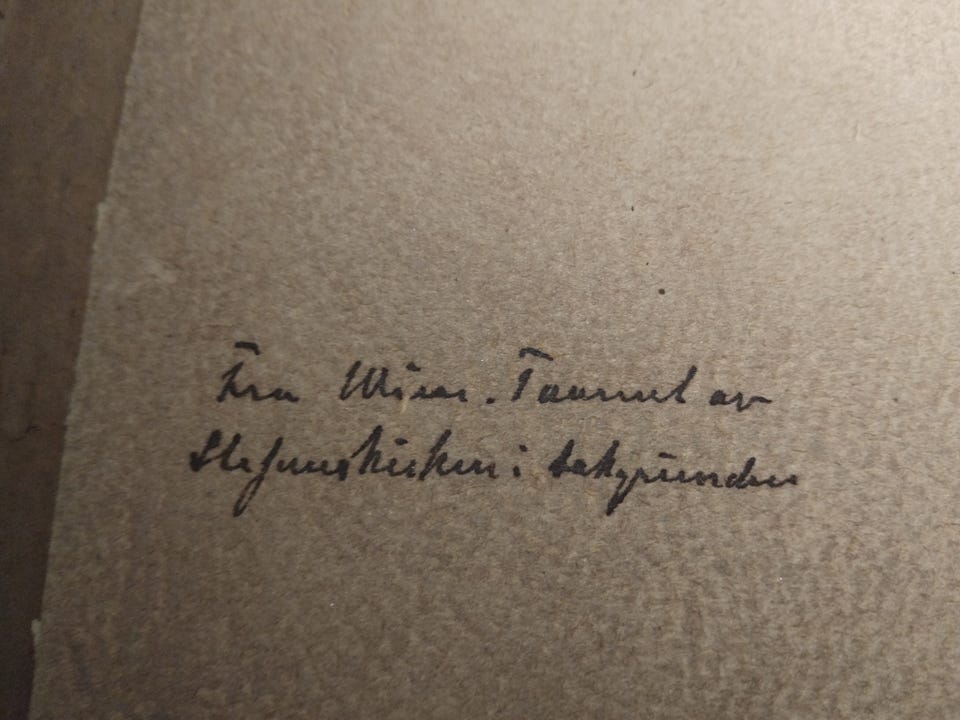 Fra Wien. Taarnet av
Stefanskirken i bakgrunden